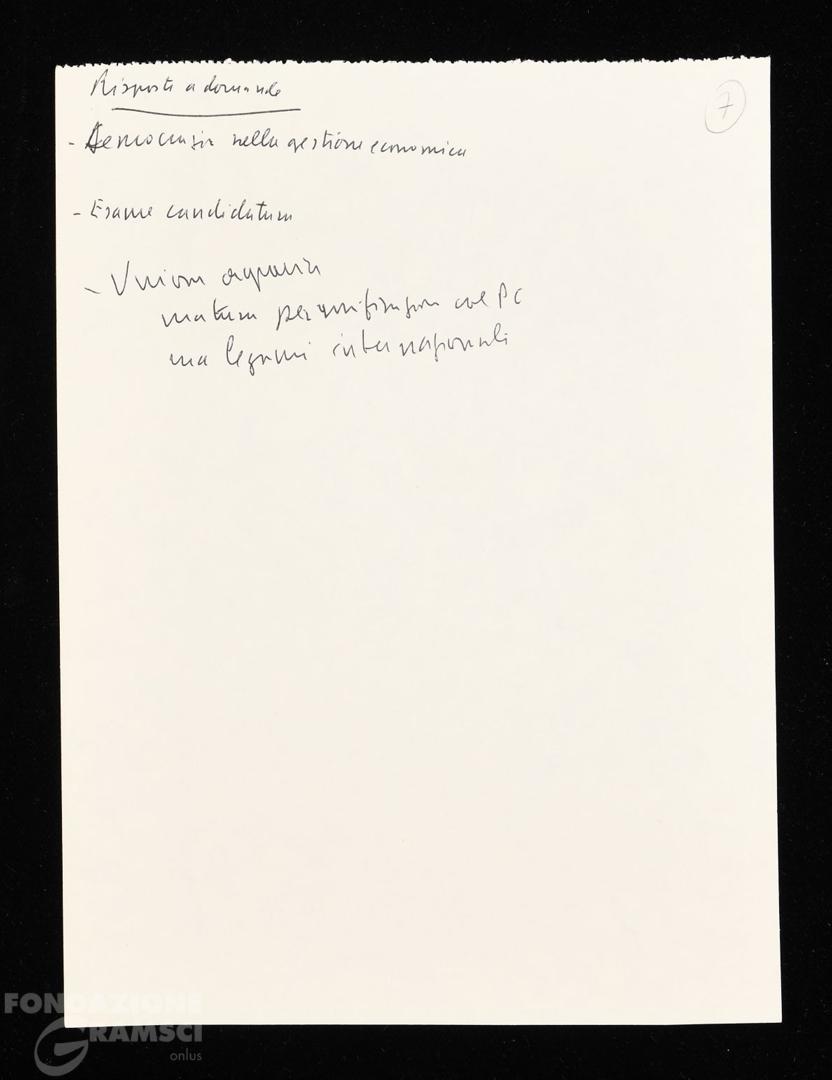 Risposte a domande
7
- Democrazia nella gestione economica
- Esame candidature
- Unione agraria
matura per unificazione col PC
ma legami internazionali
FONDAZIONE
GRAMSCI
onlus